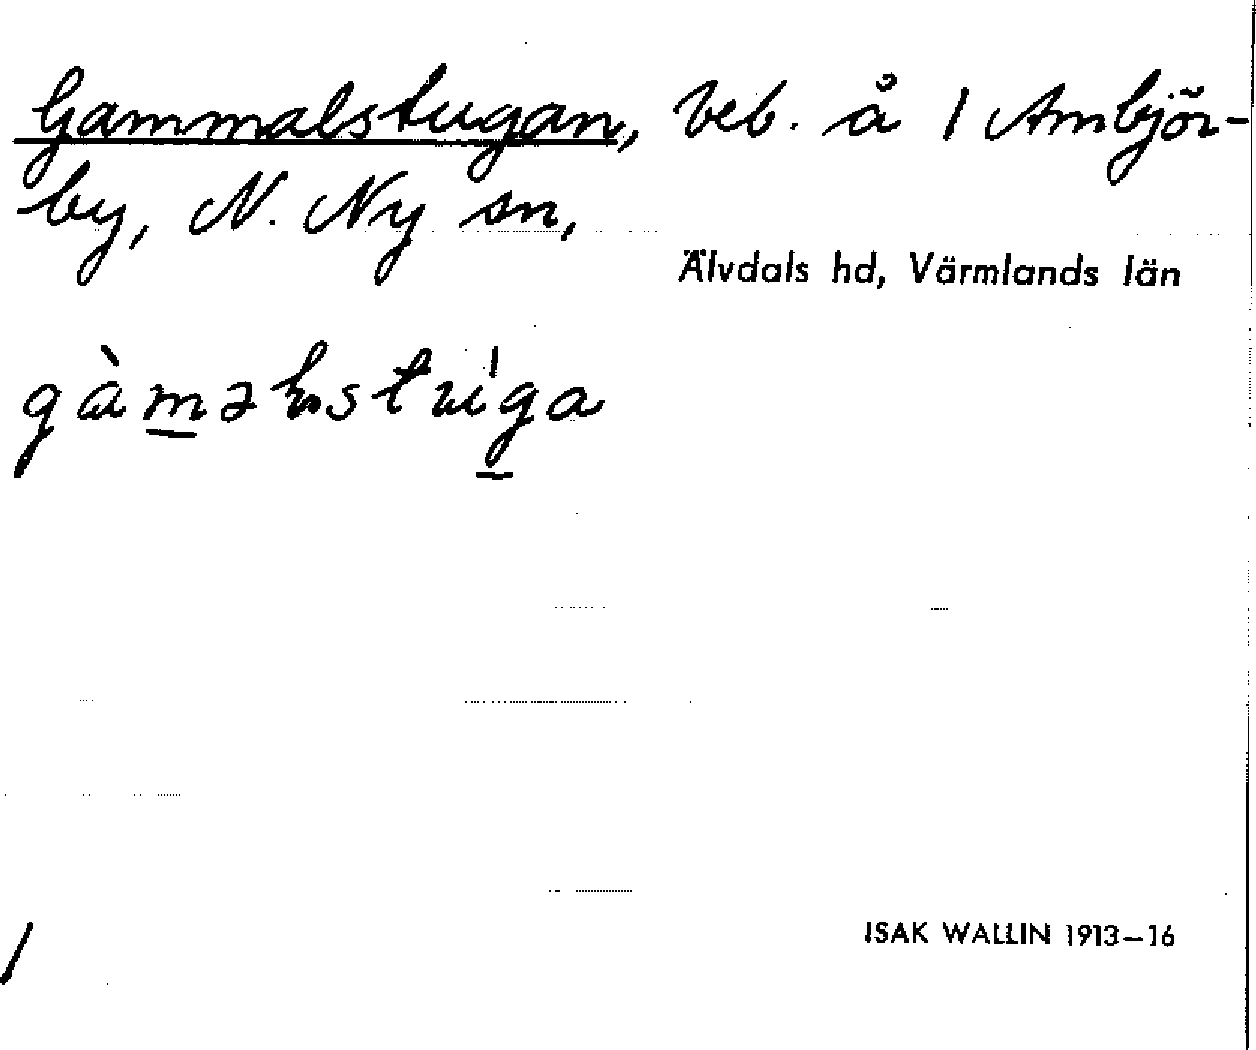 Gammalstugan, beb. å 1 Ambjör-
by, N. Ny sn,
Älvdals hd, Värmlands län
ISAK WALLIN 1913–16